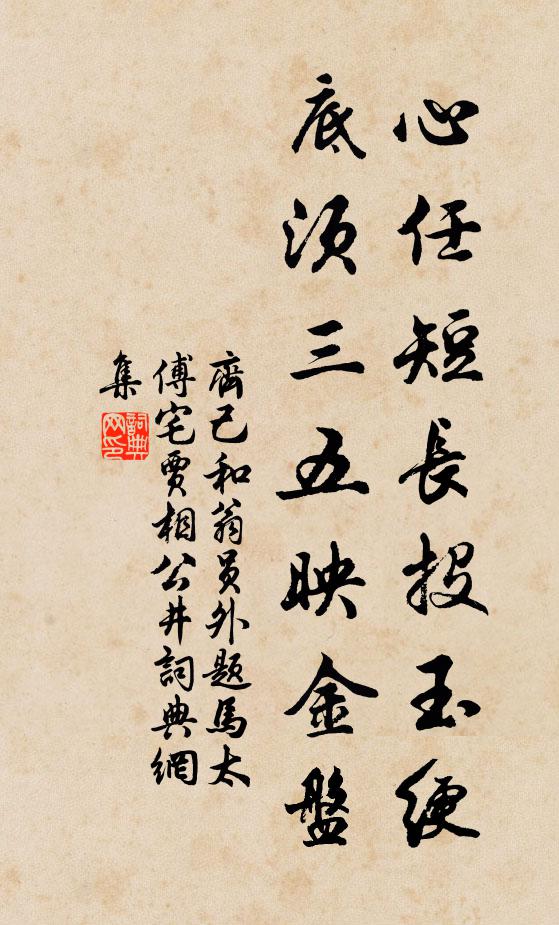 心任短長投玉綆
底須三五映金盤
齊己和翁員外題馬太
傅宅賈相公井詞典網
集
詞典
网印